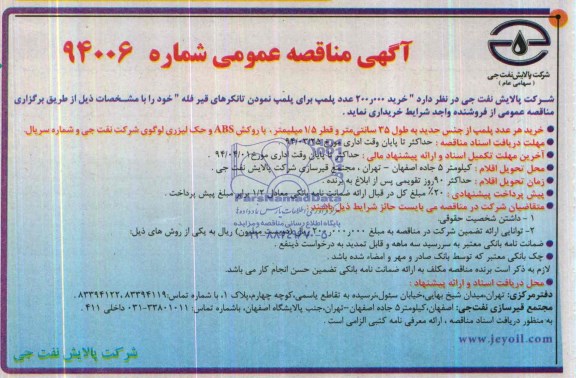 آگهی مناقصه عمومی شماره ۹۴۰۰۶
شرکت پالایش نفت جی
(سهامی عام)
شرکت پالایش نفت جی در نظر دارد " خرید ۲۰۰,۰۰۰ عدد پلمپ برای پلمپ نمودن تانکرهای قیر فله " خود را با مشخصات ذیل از طریق برگزاری
مناقصه عمومی از فروشنده واجد شرایط خریداری نماید .
● خرید هر عدد پلمپ از جنس جدید به طول ۳۵ سانتی‌متر و قطر ۱/۵ میلیمتر ، با روکش ABS و حک لیزری لوگوی شرکت نفت جی و شماره سریال.
● مهلت دریافت اسناد مناقصه : حداکثر تا پایان وقت اداری مورخ
● آخرین مهلت تکمیل اسناد و ارائه پیشنهاد مالی : حداکثر تا پایان وقت اداری مورخ ۹۴/۰۴/۰۱ .
● محل تحویل اقلام : کیلومتر ۵ جاده اصفهان - تهران ، مجتمع قیرسازی شرکت پالایش نفت جی .
● زمان تحویل اقلام : حداکثر ۹۰ روز تقویمی پس از ابلاغ به برنده .
● پیش پرداخت پیشنهادی : ۲۰٪ مبلغ کل در قبال ارائه ضمانت نامه بانکی معادل ۱/۲ برابر مبلغ پیش پرداخت .
● متقاضیان شرکت در مناقصه می بایست حائز شرایط ذیل باشند :
۱ - داشتن شخصیت حقوقی.
۲- توانایی ارائه تضمین شرکت در مناقصه به مبلغ ۲۰۰,۰۰۰,۰۰۰ ریال (دویست میلیون) ریال به یکی از روش های ذیل:
● ضمانت نامه بانکی معتبر به سررسید سه ماهه و قابل تمدید به درخواست ذینفع .
● چک بانکی معتبر که توسط بانک صادر و مهر و امضاء شده باشد .
لازم به ذکر است برنده مناقصه مکلف به ارائه ضمانت نامه بانکی تضمین حسن انجام کار می باشد.
● محل دریافت اسناد و ارائه پیشنهاد :
دفترمرکزی: تهران،میدان شیخ بهایی،خیابان سئول،نرسیده به تقاطع یاسمی،کوچه چهارم،پلاک ۱، با شماره تماس:۸۳۳۹۴۱۱۹،۸۳۳۹۴۱۲۲ .
مجتمع قیرسازی نفت‌جی: اصفهان،کیلومتر۵ جاده اصفهان-تهران،جنب پالایشگاه اصفهان، باشماره تماس: ۳۳۸۰۱۰۱۱-۰۳۱ داخلی ۴۱۱ .
به منظور دریافت اسناد مناقصه ، ارائه معرفی نامه کتبی الزامی است .
www.jeyoil.com
شرکت پالایش نفت جی
ParsNamadData
پایگاه اطلاع رسانی مناقصه و مزایده